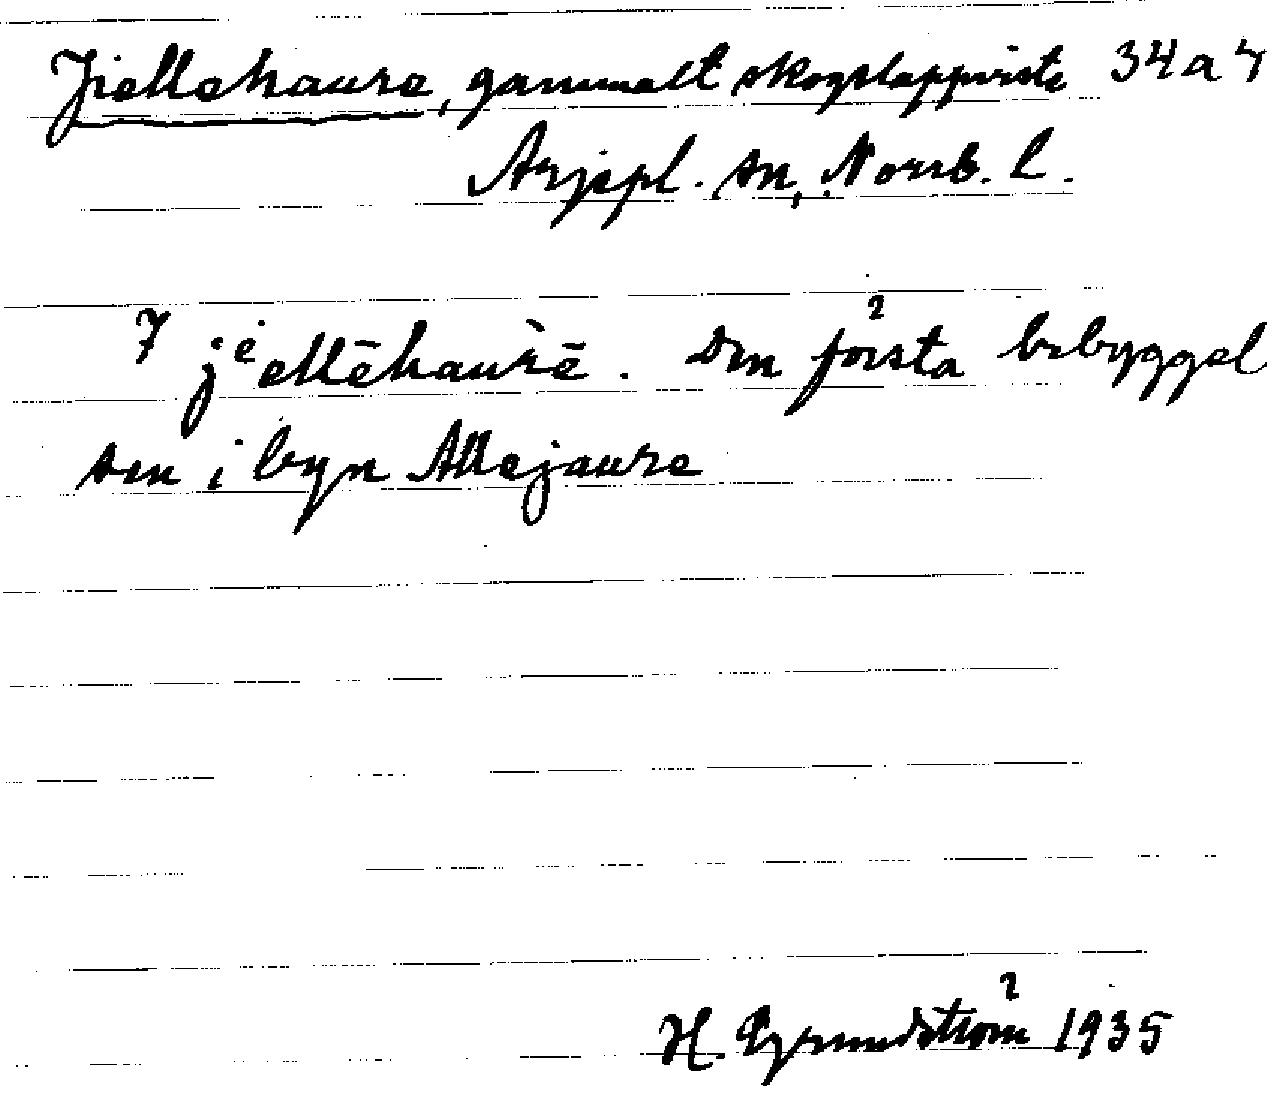 Jiellehaure, gammalt skogslappviste 34 a 4
Arjepl. sn, Norrb. l.
7 jiellēhau̇rē. Den första bebyggel
sen i byn Allejaure
H. Grundström 1935